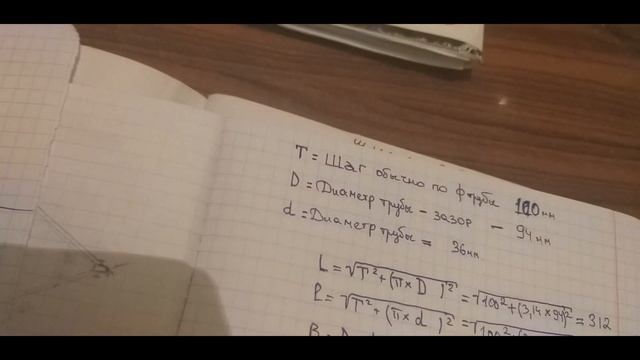 T = Шаг обычно по ф трубы 100 мм
D = Диаметр трубы - зазор - 94 мм
d = Диаметр трубы = 36 мм
L = √T²+(π×D)² = √100²+(3,14×94)² = 312
l = √T²+(π×d)² = √100²